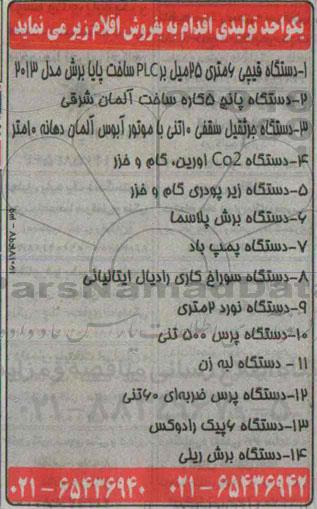 یکواحد تولیدی اقدام به بفروش اقلام زیر می نماید
۱-دستگاه قیچی ۶متری ۲۵میل بر PLC ساخت پایا برش مدل ۲۰۱۳
۲-دستگاه پانچ ۵کاره ساخت آلمان شرقی
۳-دستگاه جرثقیل سقفی ۱۰تنی با موتور آبوس آلمان دهانه ۱۰متر
۴-دستگاه Co2 اورین، گام و خزر
۵-دستگاه زیر پودری گام و خزر
۶-دستگاه برش پلاسما
۷-دستگاه پمپ باد
۸-دستگاه سوراخ کاری رادیال ایتالیائی
۹-دستگاه نورد ۲متری
۱۰-دستگاه پرس ۵۰۰ تنی
۱۱- دستگاه لبه زن
۱۲-دستگاه پرس ضربه‌ای ۶۰تنی
۱۳-دستگاه ۶پیک رادوکس
۱۴-دستگاه برش ریلی
۰۲۱-۶۵۴۳۶۹۴۰ ۰۲۱-۶۵۴۳۶۹۴۲